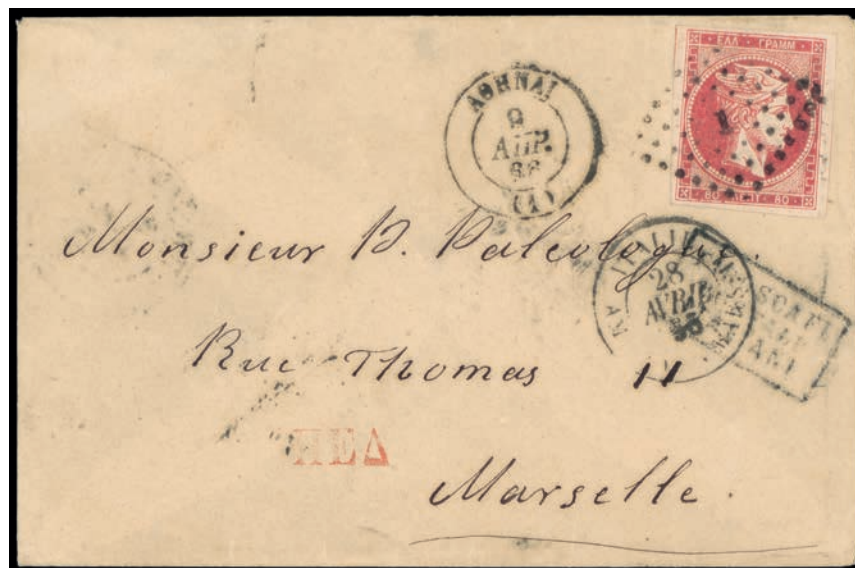 ΕΛΛ · ΓΡΑΜΜ
80 ΛΕΠΤ 80
1
ΑΘΗΝΑΙ
9
ΑΠΡ.
66
(1)
Monsieur P. Paleologue.
28
AVRIL
Rue Thomas 11
ΠΕΔ
Marselle.